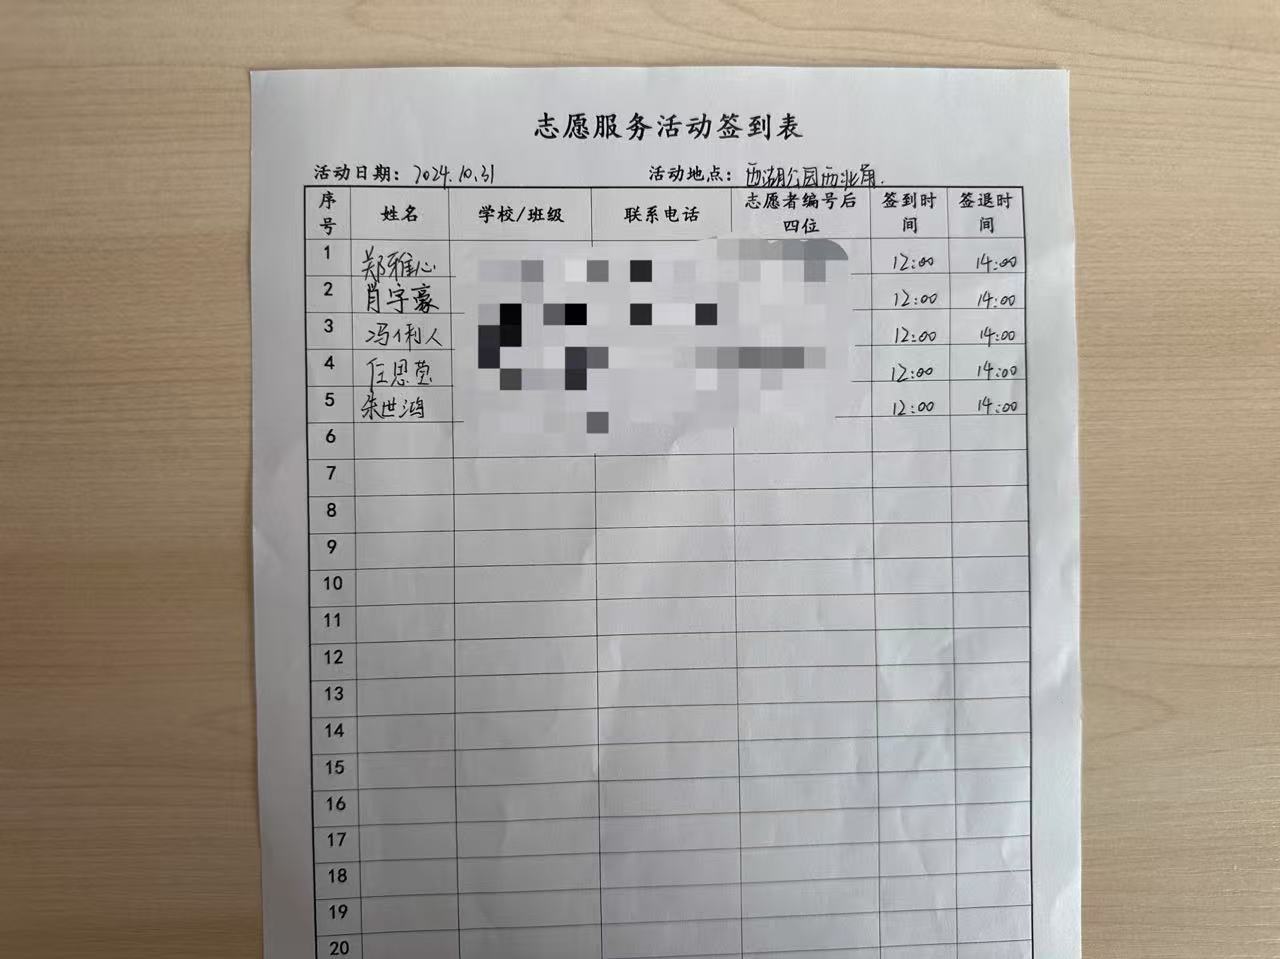 志愿服务活动签到表
活动日期：2024.10.31 活动地点：西湖公园西北角.
序号 姓名 学校/班级 联系电话 志愿者编号后四位 签到时间 签退时间
1 郑雅心 12:00 14:00
2 肖宇豪 12:00 14:00
3 冯俐人 12:00 14:00
4 任思莹 12:00 14:00
5 朱世鸿 12:00 14:00
6
7
8
9
10
11
12
13
14
15
16
17
18
19
20